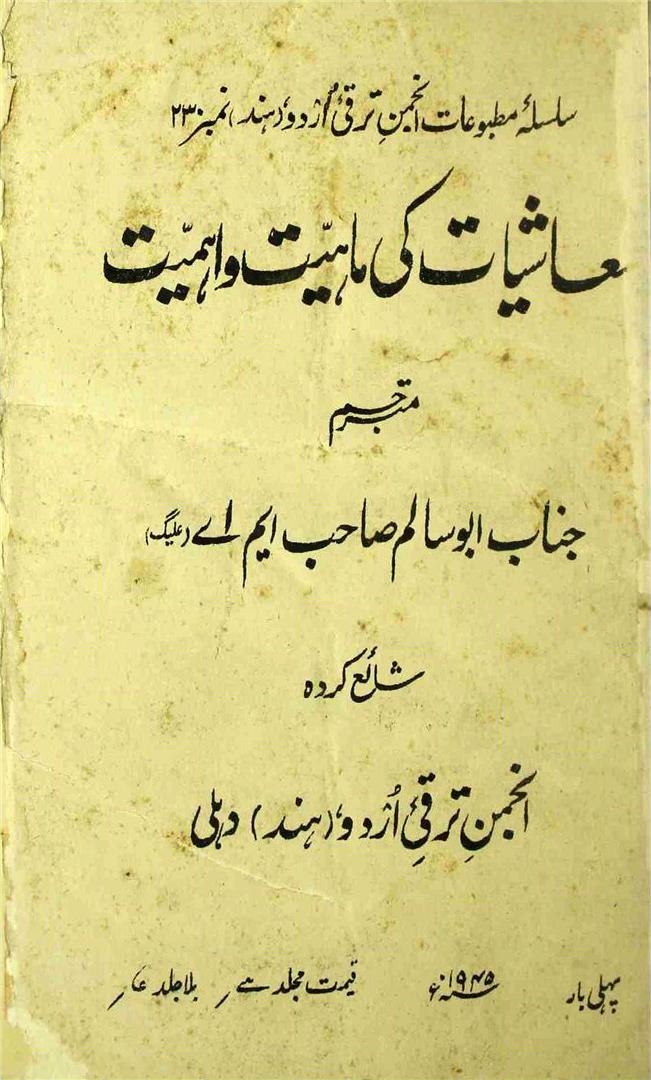 سلسلۂ مطبوعات انجمنِ ترقیِ اُردو (ہند) نمبر ۲۳۰
معاشیات کی ماہیّت و اہمیّت
مترجم
جناب ابو سالم صاحب ایم اے (علیگ)
شائع کردہ
انجمنِ ترقیِ اُردو (ہند) دہلی
پہلی بار ۱۹۴۵ء قیمت مجلد بلا جلد